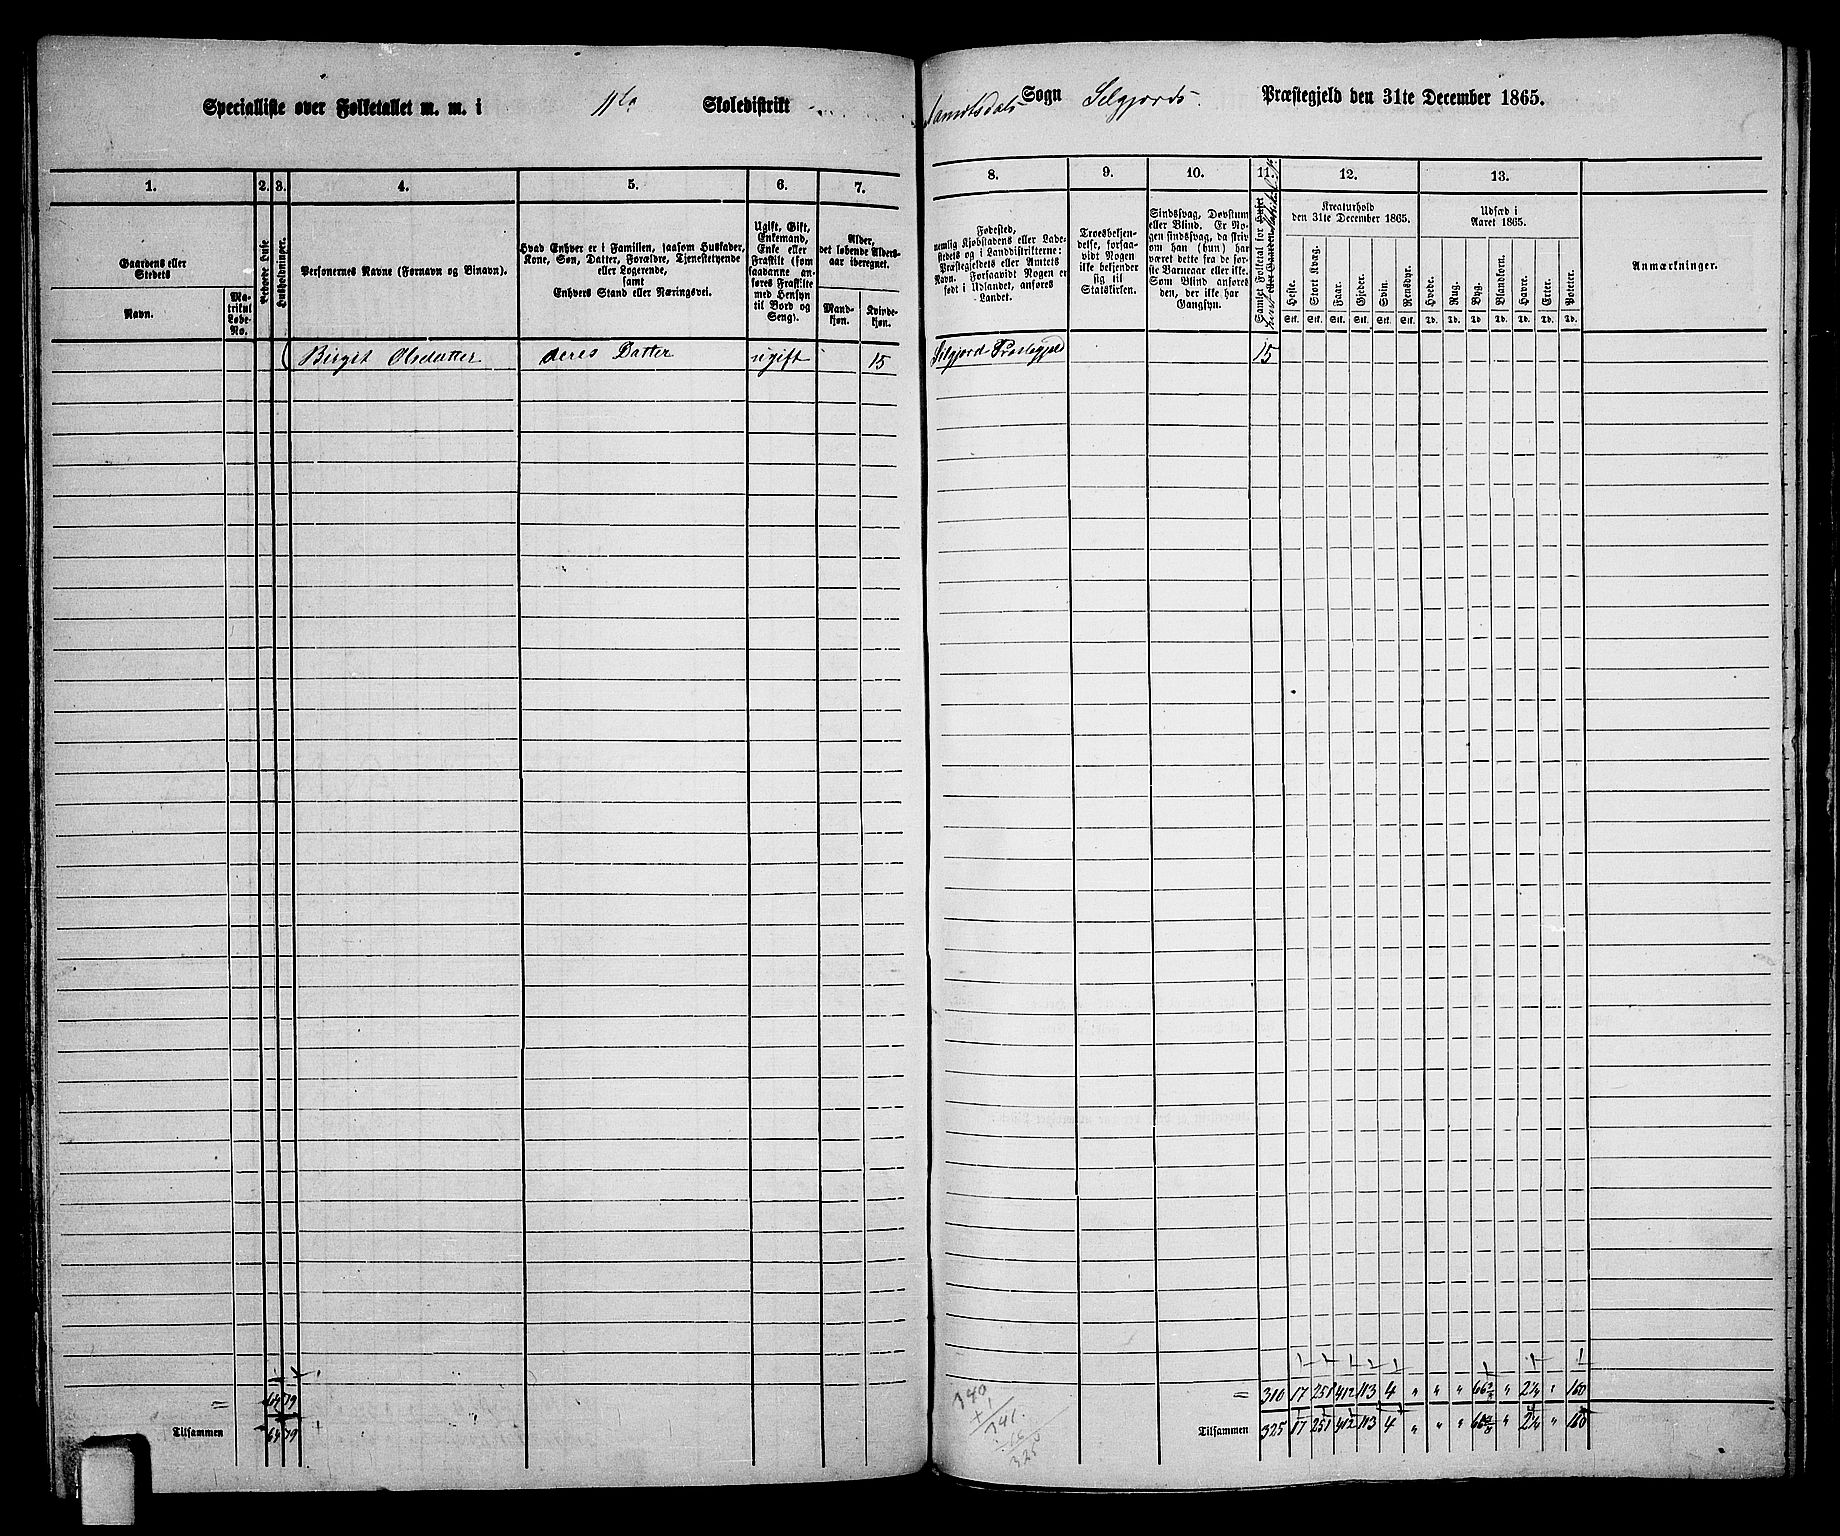 Specialliste over Folketallet m. m. i 11te Skoledistrikt
Sogn Selgjords Præstegjeld den 31te December 1865.
1. 2. 3. 4. 5. 6. 7.
8. 9. 10. 11. 12. 13.
Gaardens eller Stedets
Navn.
Matrikul Løbe-No.
Beboede Huse
Husholdninger.
Personernes Navne (Fornavn og Binavn).
Hvad Enhver er i Familien, saasom Husfader,
Kone, Søn, Datter, Forældre, Tjenestetyende
eller Logerende,
samt
Enhvers Stand eller Næringsvei.
Ugift, Gift,
Enkemand,
Enke eller
Fraskilt (som
saadanne an-
føres Fraskilte
med Hensyn
til Bord og
Seng).
Alder,
det løbende Alders-
aar iberegnet.
Mand-
kjøn.
Kvinde-
kjøn.
Fødested,
nemlig Kjøbstadens eller Lade-
stedets og i Landdistrikterne:
Præstegjeldets eller Amtets
Navn. Forsaavidt Nogen er
født i Udlandet, anføres
Landet.
Troesbekjen-
delse, forsaa-
vidt Nogen
ikke bekjender
sig til
Statskirken.
Sindssvag, Døvstum
eller Blind. Er No-
gen sindssvag, da skriv
om han (hun) har
været dette fra de før-
ste Barneaar eller ikke.
Som Blind anføres
den, der ikke har
Gangsyn.
Samlet Folketal for
Kreaturhold
den 31te December 1865.
Heste. Stort Kvæg. Faar. Gjeder. Svin. Rensdyr.
Stk. Stk. Stk. Stk. Stk. Stk.
Udsæd i
Aaret 1865.
Hvede. Rug. Byg. Blandkorn. Havre. Erter. Poteter.
Td. Td. Td. Td. Td. Td. Td.
Anmærkninger.
Birgit Olsdatter deres Datter ugift 15 Selgjord Præstegjeld 15
= 64 79
= 310 17 251 412 113 4 " " " 66 3/8 " 2 1/4 " 160
Tilsammen 64 79
Tilsammen 325 17 251 412 113 4 " " " 66 3/8 " 2 1/4 " 160
325